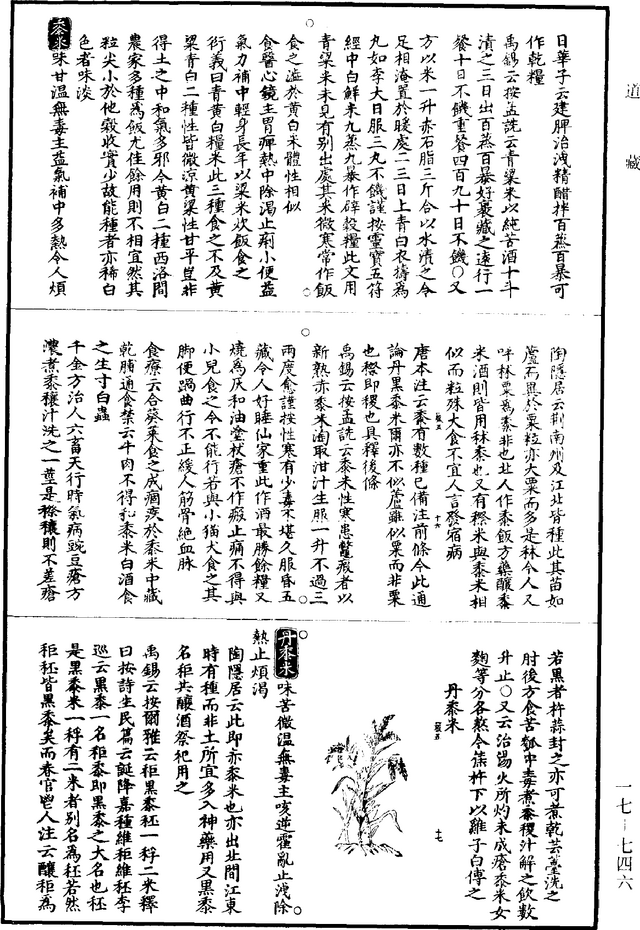 道藏
日華子云建脾治洩精醋拌百蒸百暴可
作乾糧
禹錫云按孟詵云青粱米以純苦酒十斗
漬之三日出百蒸百暴好裹藏之遠行一
餐十日不饑重餐四百九十日不饑○又
方以米一升赤石脂三斤合以水漬之令
足相淹置於暖處二三日上青白衣擣為
丸如李大日服三丸不饑謹按靈寶五符
經中白鮮米九蒸九暴作辟穀糧此文用
青粱米未見有別出處其米微寒常作飯
食之澁於黃白米體性相似
食醫心鏡主胃痺熱中除渴止痢小便益
氣力補中輕身長年以粱米炊飯食之
衍義曰青黃白糧米此三種食之不及黃
粱青白二種性皆微涼黃粱性甘平豈非
得土之中和氣多邪今黃白二種西洛間
農家多種為飯尤佳餘用則不相宜然其
粒尖小於他穀收實少故能種者亦稀白
色者味淡
黍米味甘溫無毒主益氣補中多熱令人煩
陶隱居云荆南州及江北皆種此其苗如
蘆而異於粟粒亦大粟而多是秫今人又
呼秫粟為黍非也北人作黍飯方藥釀黍
米酒則皆用秫黍也又有穄米與黍米相
似而粒殊大食不宜人言發宿病
唐本注云黍有數種已備注前條今此通
論丹黑黍米爾亦不似蘆雖似粟而非粟
也穄即稷也具釋後條
禹錫云按孟詵云黍米性寒患鼈瘕者以
新熟赤黍米淘取泔汁生服一升不過三
兩度愈謹按性寒有少毒不堪久服昏五
藏令人好睡仙家重此作酒最勝餘糧又
燒為灰和油塗杖瘡不作瘢止痛不得與
小兒食之令不能行若與小猫犬食之其
脚便跼曲行不正緩人筋骨絕血脉
食療云合葵菜食之成痼疾於黍米中藏
乾脯通食禁云牛肉不得和黍米白酒食
之生寸白蟲
千金方治人六畜天行時氣病豌豆瘡方
濃煮黍穰汁洗之一莖是穄穰則不差瘡
若黑者杵蒜封之亦可煮乾芸薹洗之
肘後方食苦瓠中毒煮黍稷汁解之飲數
升止○又云治湯火所灼未成瘡黍米女
麴等分各熬令燋杵下以雞子白傅之
丹黍米
丹黍米味苦微溫無毒主咳逆霍亂止洩除
熱止煩渴
陶隱居云此即赤黍米也亦出北間江東
時有種而非土所宜多入神藥用又黑黍
名秬共釀酒祭祀用之
禹錫云按爾雅云秬黑黍秠一稃二米釋
曰按詩生民篇云誕降嘉種維秬維秠李
巡云黑黍一名秬黍即黑黍之大名也秠
是黑黍米一稃有二米者別名為秠若然
秬秠皆黑黍矣而春官鬯人注云釀秬為
一七－七四六